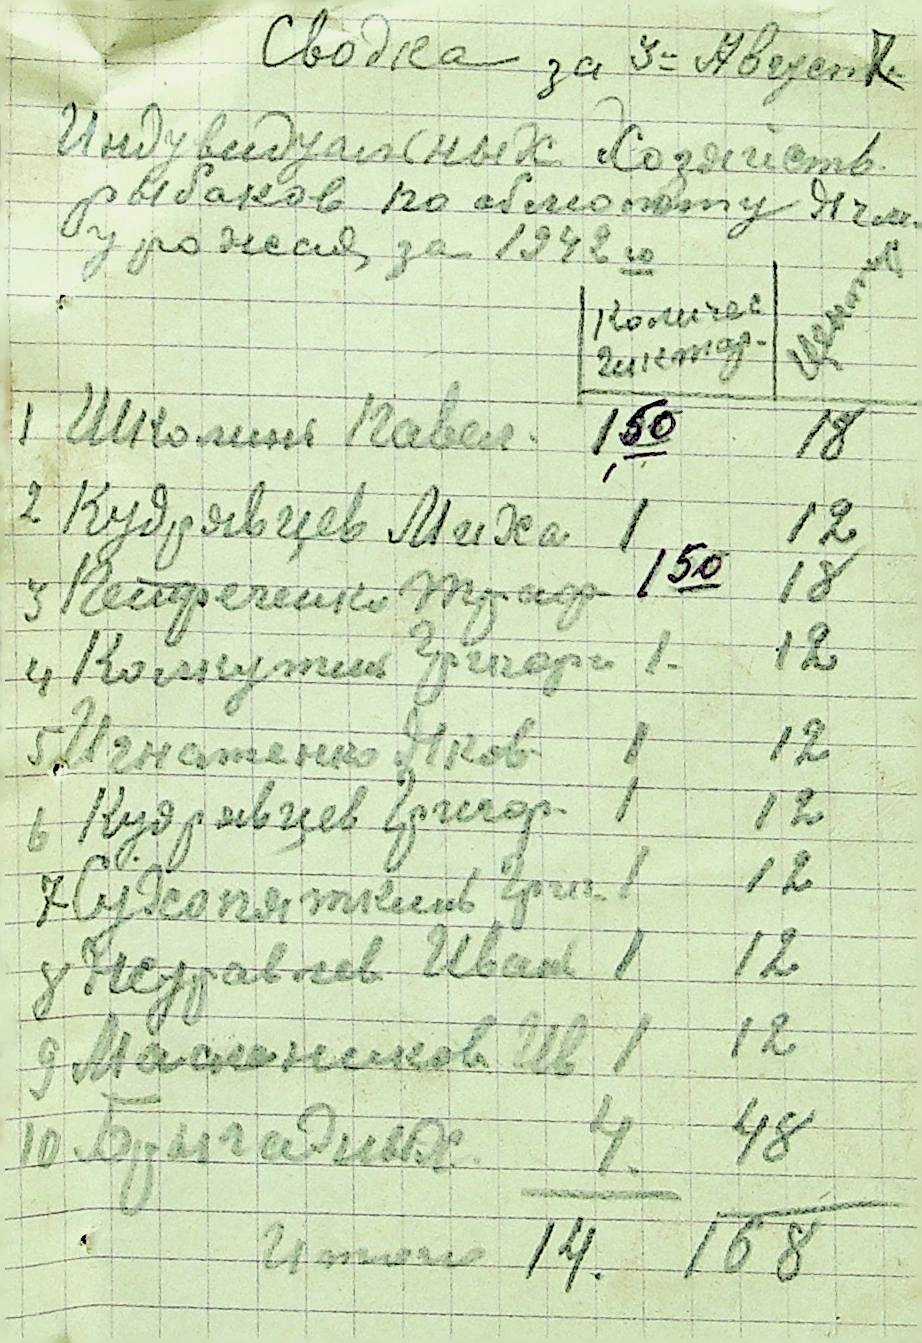 Сводка за 3= Август
Индувидуальных Хозяйств
рыбаков по обмолоту Ячм.
урожая за 1942 го
Количес Центн
гиктар.
1 Школин Павел. 1,50 18
2 Кудрявцев Миха 1 12
3 1 50 18
4 Григори 1. 12
5. Игнатенко Яков 1 12
6 Кудрявцев Григор. 1 12
7 Сухопяткинъ Григ. 1 12
8 Журавлев Иван 1 12
9 Масленников Ив 1 12
10 Брыгадных 4. 48
Итого 14. 168